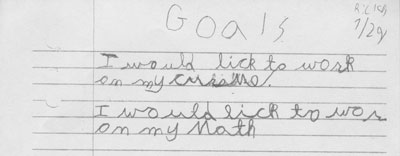 Goals
1/29
I would lick to work
on my
I would lick to wor
on my Math